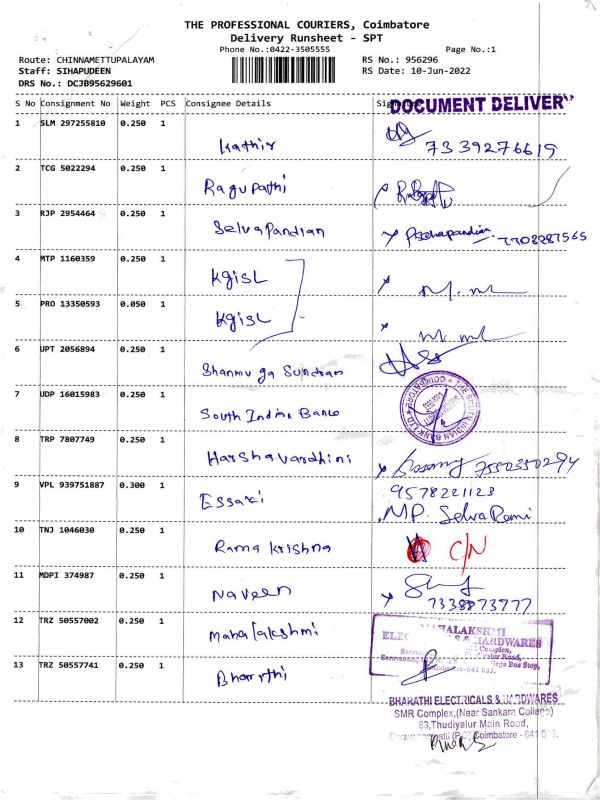 THE PROFESSIONAL COURIERS, Coimbatore
Delivery Runsheet - SPT
Phone No.:0422-3505555
Page No.:1
Route: CHINNAMETTUPALAYAM
RS No.: 956296
Staff: SIHAPUDEEN
RS Date: 10-Jun-2022
DRS No.: DCJB95629601
S No Consignment No Weight PCS Consignee Details
DOCUMENT DELIVERY
1 SLM 297255810 0.250 1
Kathir 7339276619
2 TCG 5022294 0.250 1
Ragupathi
3 RJP 2954464 0.250 1
Selvapandian 7708287565
4 MTP 1160359 0.250 1
KgisL
5 PRO 13350593 0.050 1
KgisL
6 UPT 2056894 0.250 1
Shanmuga Sundram
7 UDP 16015983 0.250 1
THE SOUTH INDIAN BANK LTD. COIMBATORE
South Indian Bank
8 TRP 7807749 0.250 1
Harshavardhini 7550350294
9 VPL 939751887 0.300 1
9578221123
Essaki MP. Selva Rami
10 TNJ 1046030 0.250 1
Rama krishna C/N
11 MDPI 374987 0.250 1
Naveen 7338873777
12 TRZ 50557002 0.250 1
Mahalakshmi
MAHALAKSHMI
HARDWARES
Complex,
Road,
Bus Stop,
641 035.
13 TRZ 50557741 0.250 1
Bharrthi
BHARATHI ELECTRICALS & HARDWARES
SMR Complex,(Near Sankara College)
63,Thudiyalur Main Road,
Coimbatore - 641